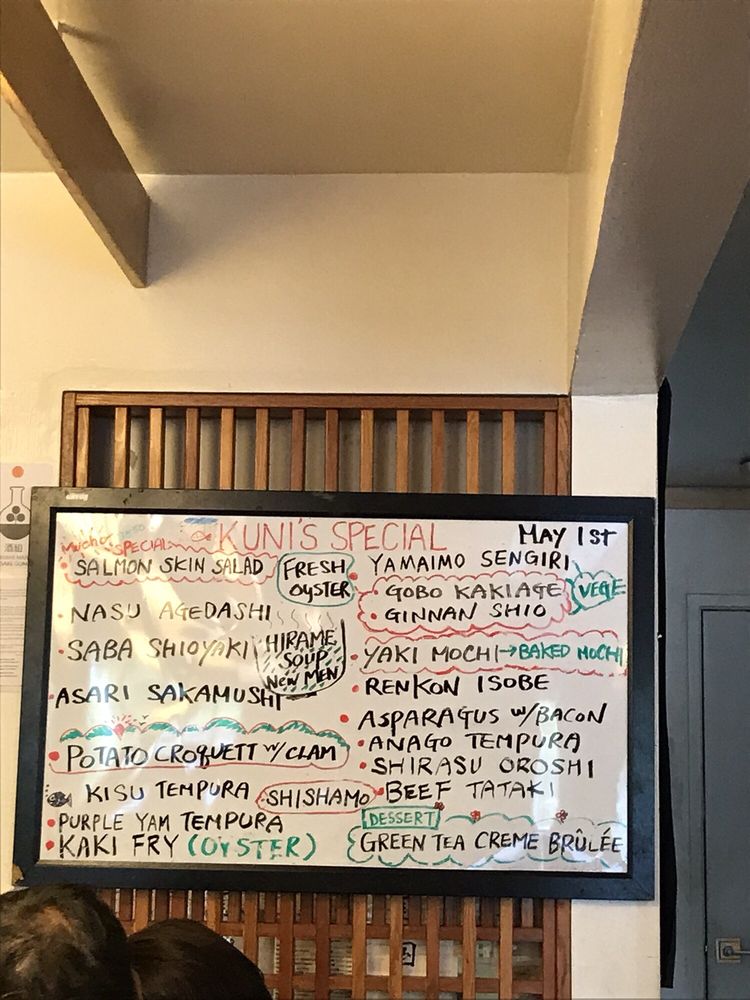 KUNI'S SPECIAL
MAY 1st
SPECIAL
SALMON SKIN SALAD
FRESH
OYSTER
NASU AGEDASHI
SABA SHIOYAKI
HIRAME
SOUP
NEW MEN
ASARI SAKAMUSHI
POTATO CROQUETT W/ CLAM
KISU TEMPURA
SHISHAMO
PURPLE YAM TEMPURA
KAKI FRY (OYSTER)
YAMAIMO SENGIRI
GOBO KAKIAGE
GINNAN SHIO
VEGE
YAKI MOCHI→BAKED MOCHI
RENKON ISOBE
ASPARAGUS W/BACON
ANAGO TEMPURA
SHIRASU OROSHI
BEEF TATAKI
DESSERT
GREEN TEA CREME BRÛLÉE